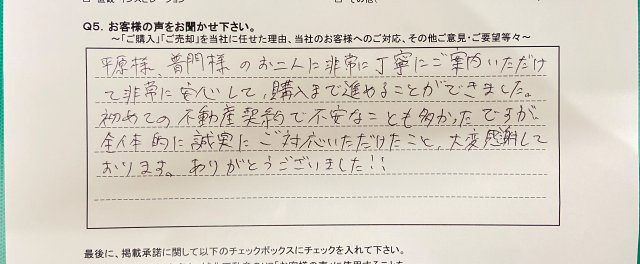 Q5. お客様の声をお聞かせ下さい。
～「ご購入」「ご売却」を当社に任せた理由、当社のお客様へのご対応、その他ご意見・ご要望等々～
平原様、普門様のお二人に非常に丁寧にご案内いただけ
て非常に安心して、購入まで進めることができました。
初めての不動産契約で不安なことも多かったですが、
全体的に誠実にご対応いただけたこと、大変感謝して
おります。ありがとうございました!!
最後に、掲載承諾に関して以下のチェックボックスにチェックを入れて下さい。